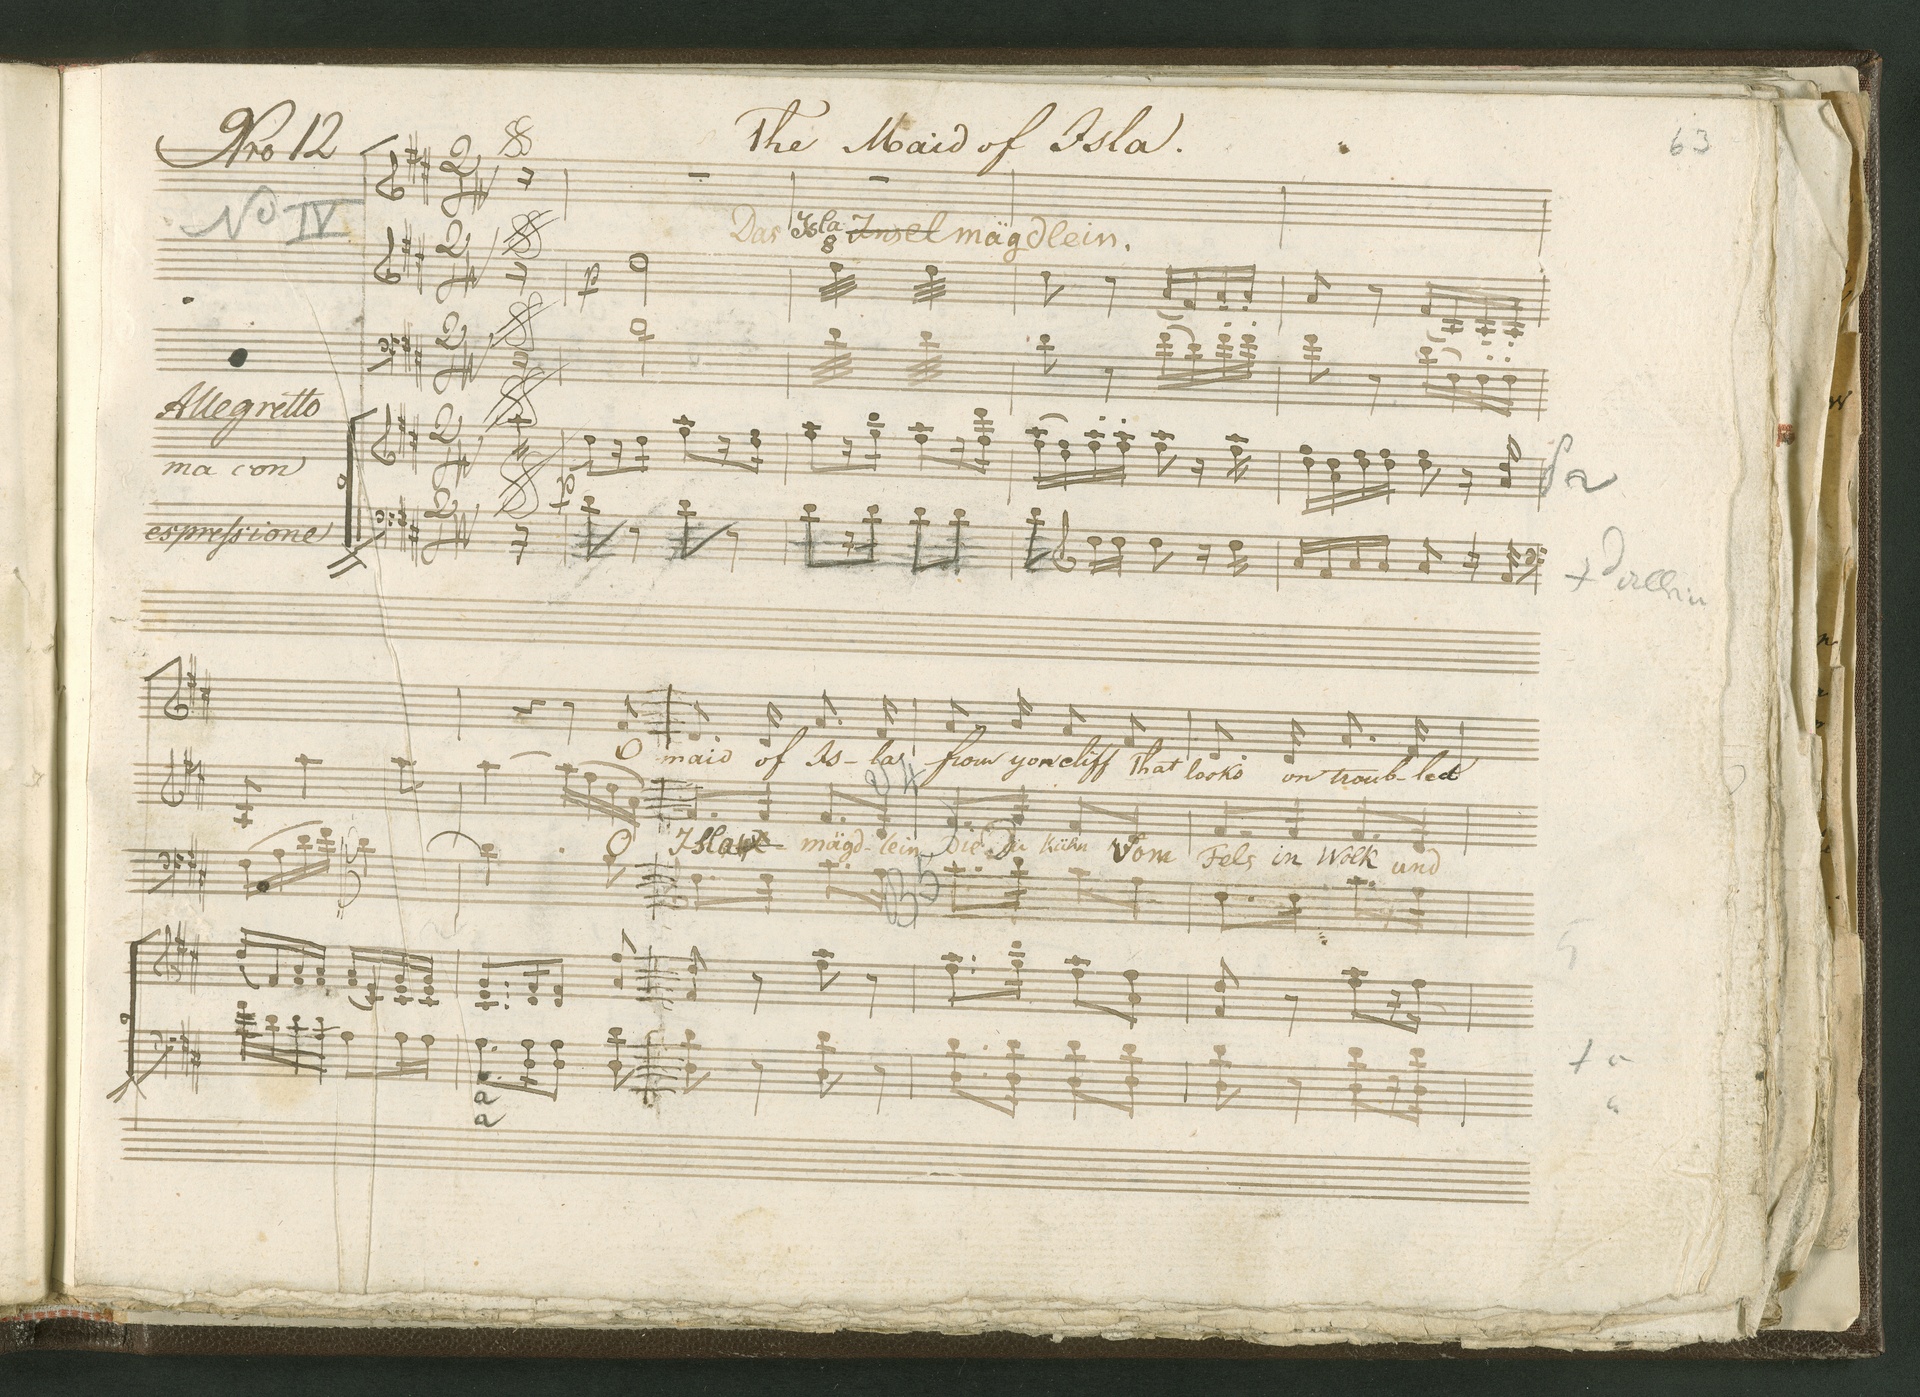 Nro 12
The Maid of Isla.
63
No IV
Das Isla Insel mägdlein.
Allegretto
ma con
espressione
O maid of Is-la from yon cliff That looks on troub-led
O Isla mägd-lein, Die Du kühn Vom Fels in Wolk und